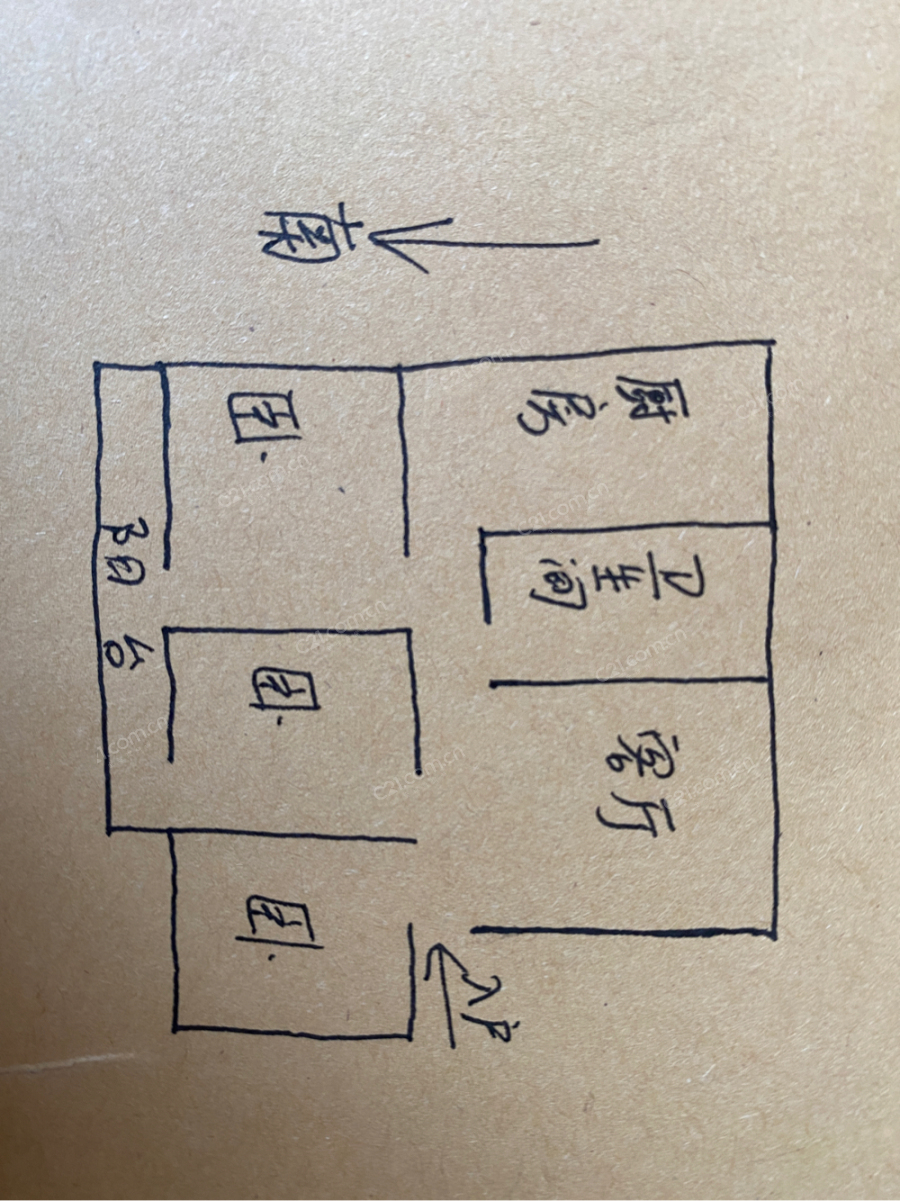 厨房
卫生间
客厅
入户
南
卧
卧
卧
阳台
c21.com.cn